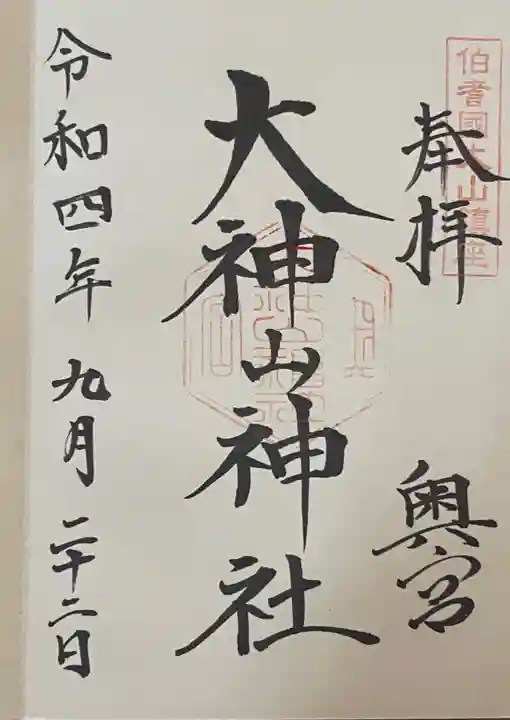 伯耆國大山鎮座
奉拝
奥宮
大神山神社
令和四年九月二十二日